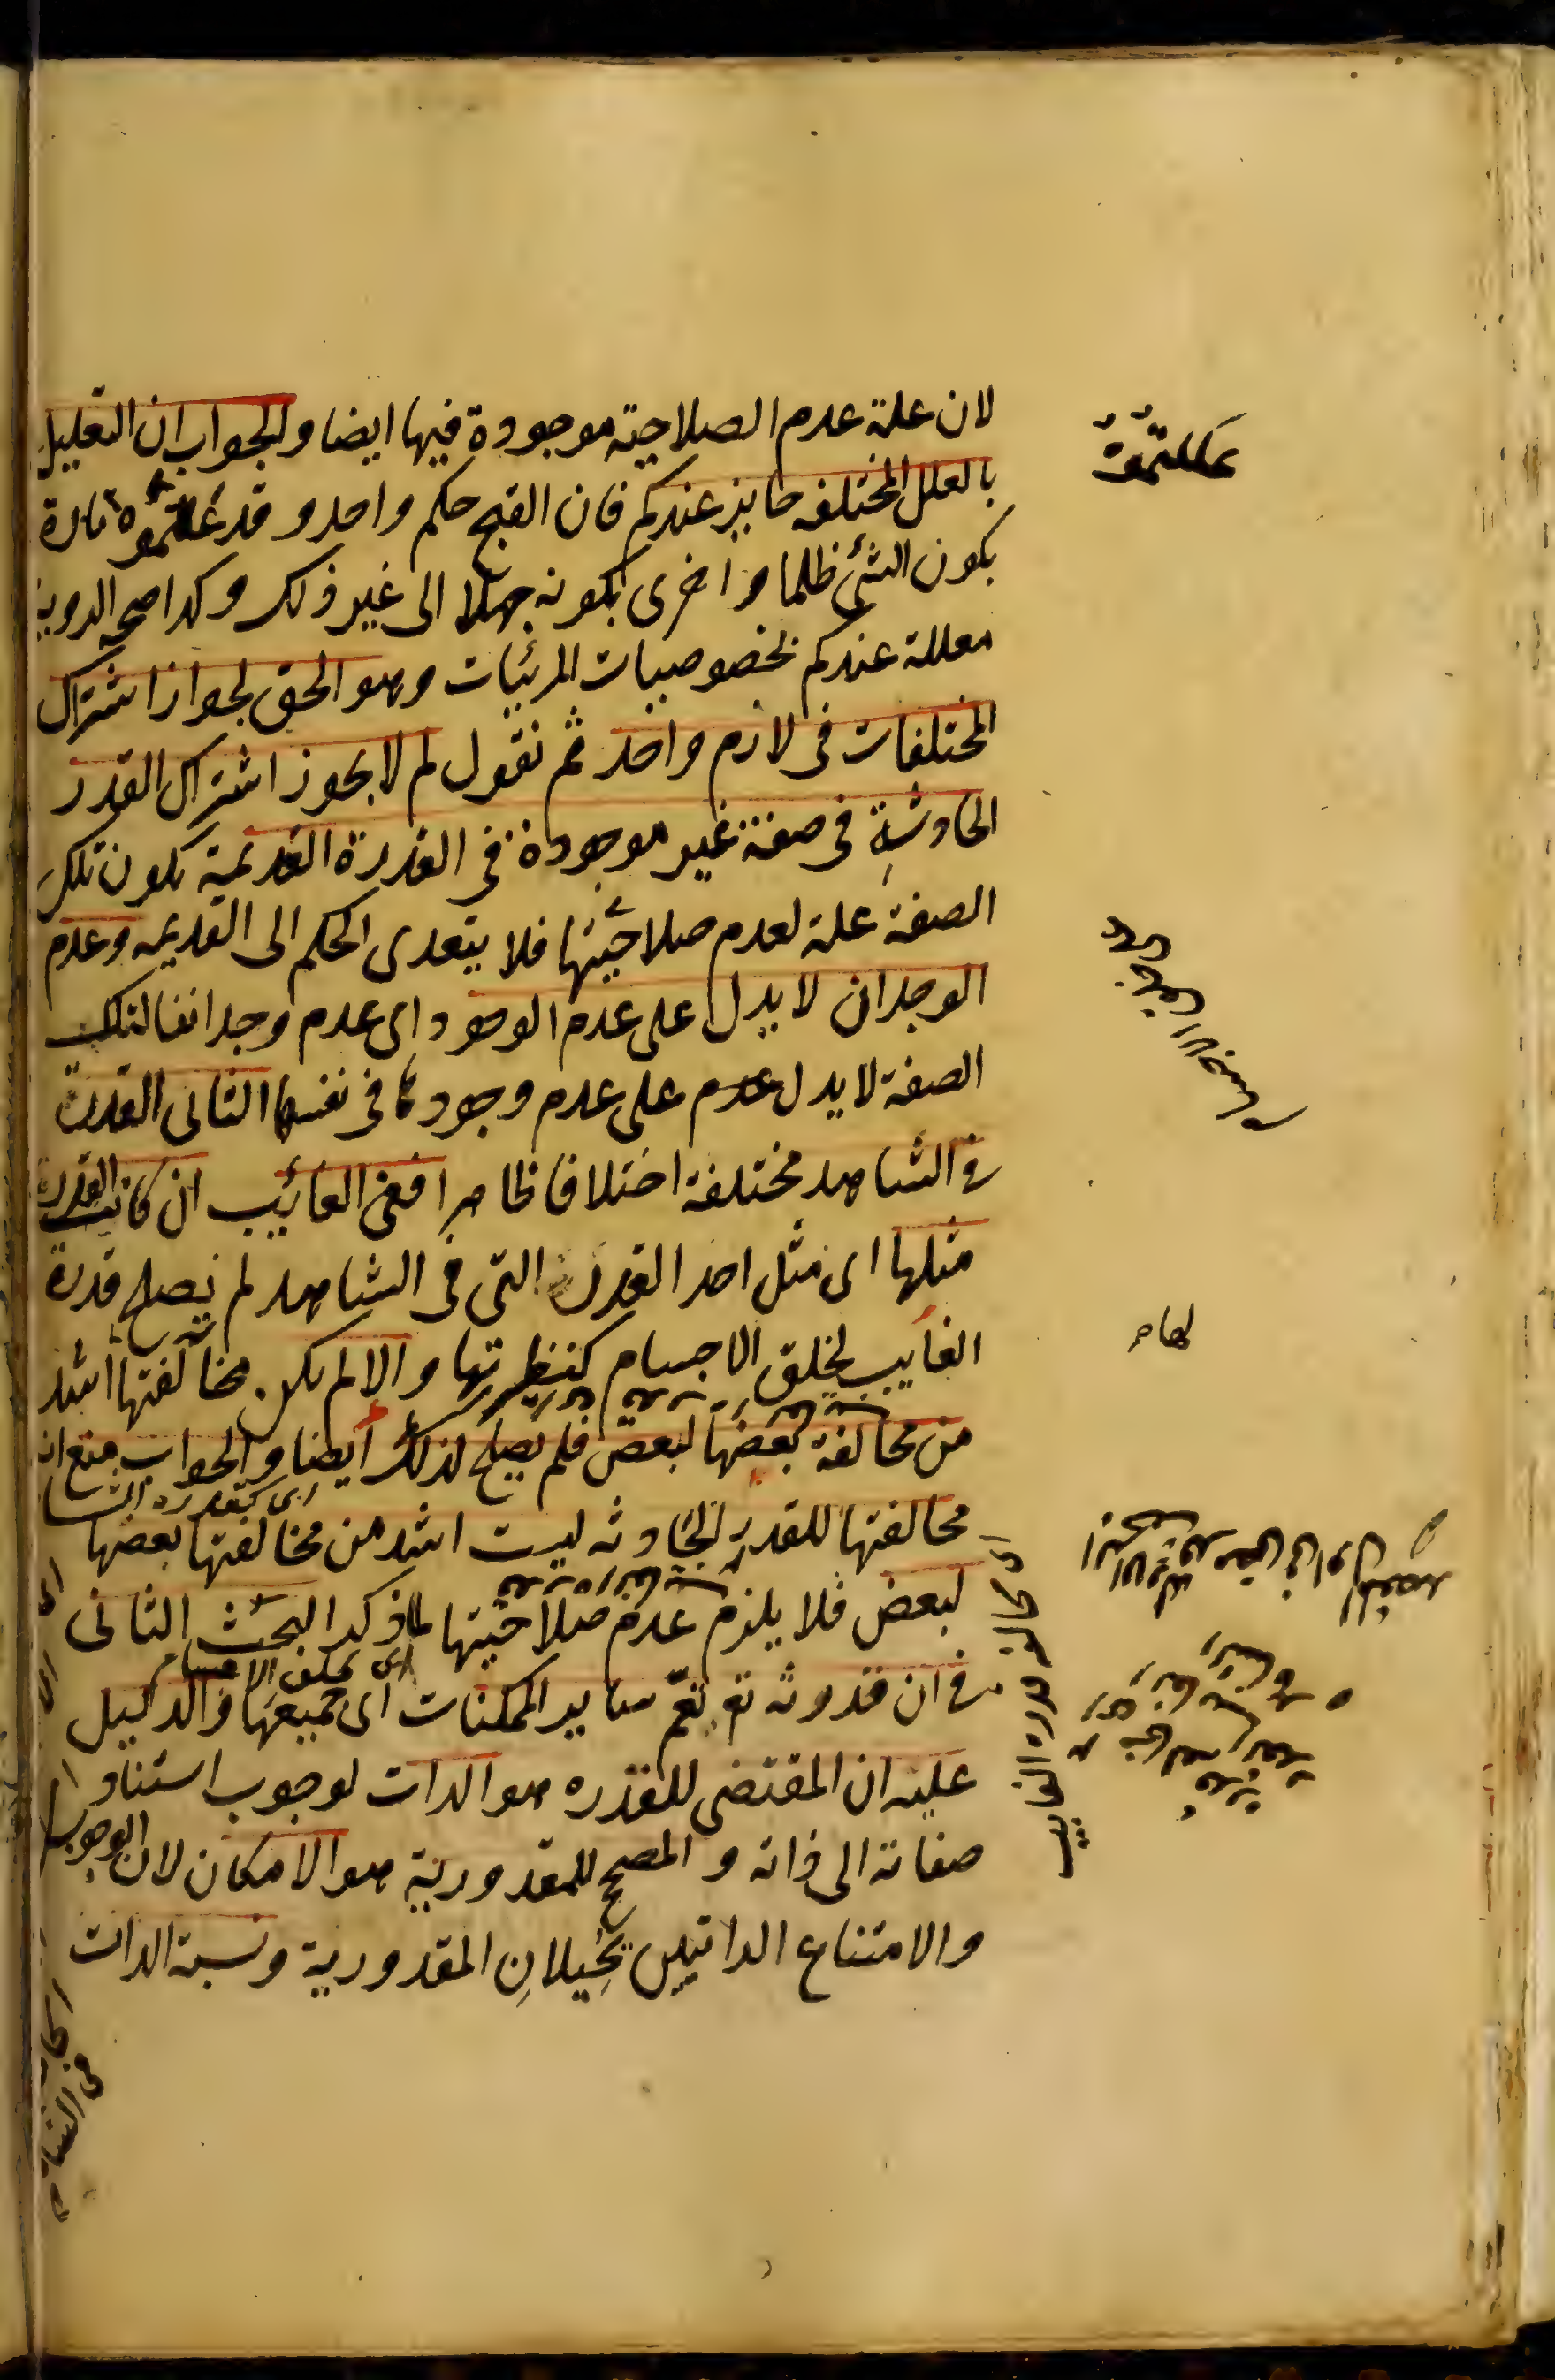 لان علة عدم الصلاحية موجودة فيها ايضا والجواب ان التعليل
بالعلل المختلفه جايز عندكم فان القبح حكم واحد و قد عللتموه تارة
بكون الشئ ظلما و اخرى بكونه جهلا الى غير ذلك و كذا صحة الروية
معللة عندكم بخصوصيات المرئيات وهو الحق لجواز اشتراك
المختلفات فى لازم واحد ثم نقول لم لا يجوز اشتراك القدر
الحادثة فى صفة غير موجودة فى القدرة القديمة بكون تلك
الصفة علة لعدم صلاحيتها فلا يتعدى الحكم الى القديمه وعدم
الوجدان لا يدل على عدم الوجود اى عدم وجداننا لتلك
الصفة لا يدل عدم على عدم وجودها فى نفسها الثانى القدرة
فى الشاهد مختلفة اختلافا ظاهرا ففى الغائيب ان كانت القدرة
مثلها اى مثل احد القدرة التى فى الشاهد لم يصلح قدرة
الغايب لخلق الاجسام كنظيرتها و الا لم يكن مخالفتها اشد
من مخالفة بعضها لبعض فلم يصلح لذلك ايضا والجواب منع ان
مخالفتها للقدر الحادثه ليست اشد من مخالفتها بعضها
لبعض فلا يلزم عدم صلاحيتها لما ذكر البحث الثانى
اى بخلق الاجسام
فى ان قدرته تع تعم ساير الممكنات اى جميعها والدليل
عليه ان المقتضى للقدره هو الذات لوجوب استناد
صفاته الى ذاته و المصحح للمقدورية هو الامكان لان الوجوب
والامتناع الذاتيين يحيلان المقدورية ونسبة الذات
عللتموه
ان كان قدرة الغايب